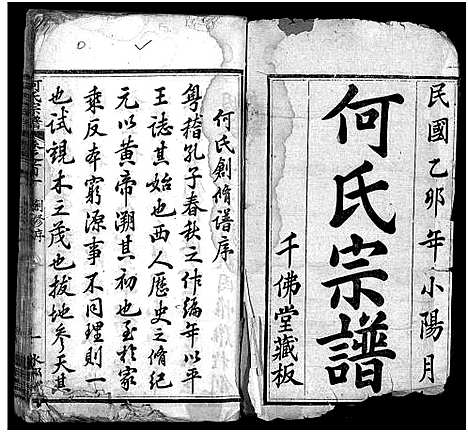 民國乙卯年小陽月
何氏宗譜
千佛堂藏板
何氏創脩譜序
粵稽孔子春秋之作編年以平
王誌其始也西人歷史之脩紀
元以黃帝溯其初也至於家
乘反本窮源事不同理則一
也試觀木之茂也拔地參天其
何氏宗譜